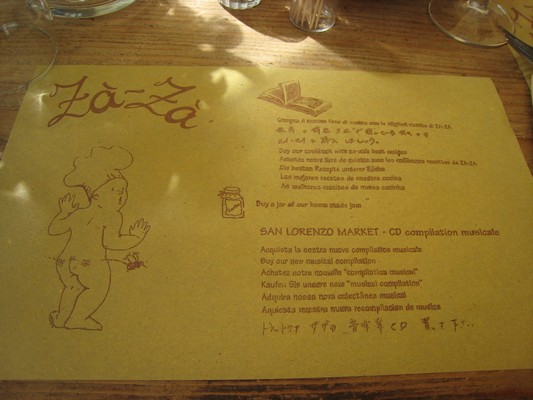 Zà-Zà
Compra il nostro libro di cucina con le migliori ricette di ZA-ZA
Buy our cookbook with za-za's best recipes
Achetez notre livre de cuisine avec les meilleures recettes de ZA-ZA
Die besten Rezepte unserer Küche
Las mejores recetas de nuestra cocina
As melhores receitas de nossa cozinha
Buy a jar of our home made jam
SAN LORENZO MARKET - CD compilation musicale
Acquista la nostra nuova compilation musicale
Buy our new musical compilation
Achetez notre nouvelle "compilation musical"
Kaufen Sie unsere neue "musical compilation"
Adquira nossa nova colectânea musical
Aquiesta nuestra nueva recompilacion de musica
トラットリア ザザの 音楽 CD 買って下さい